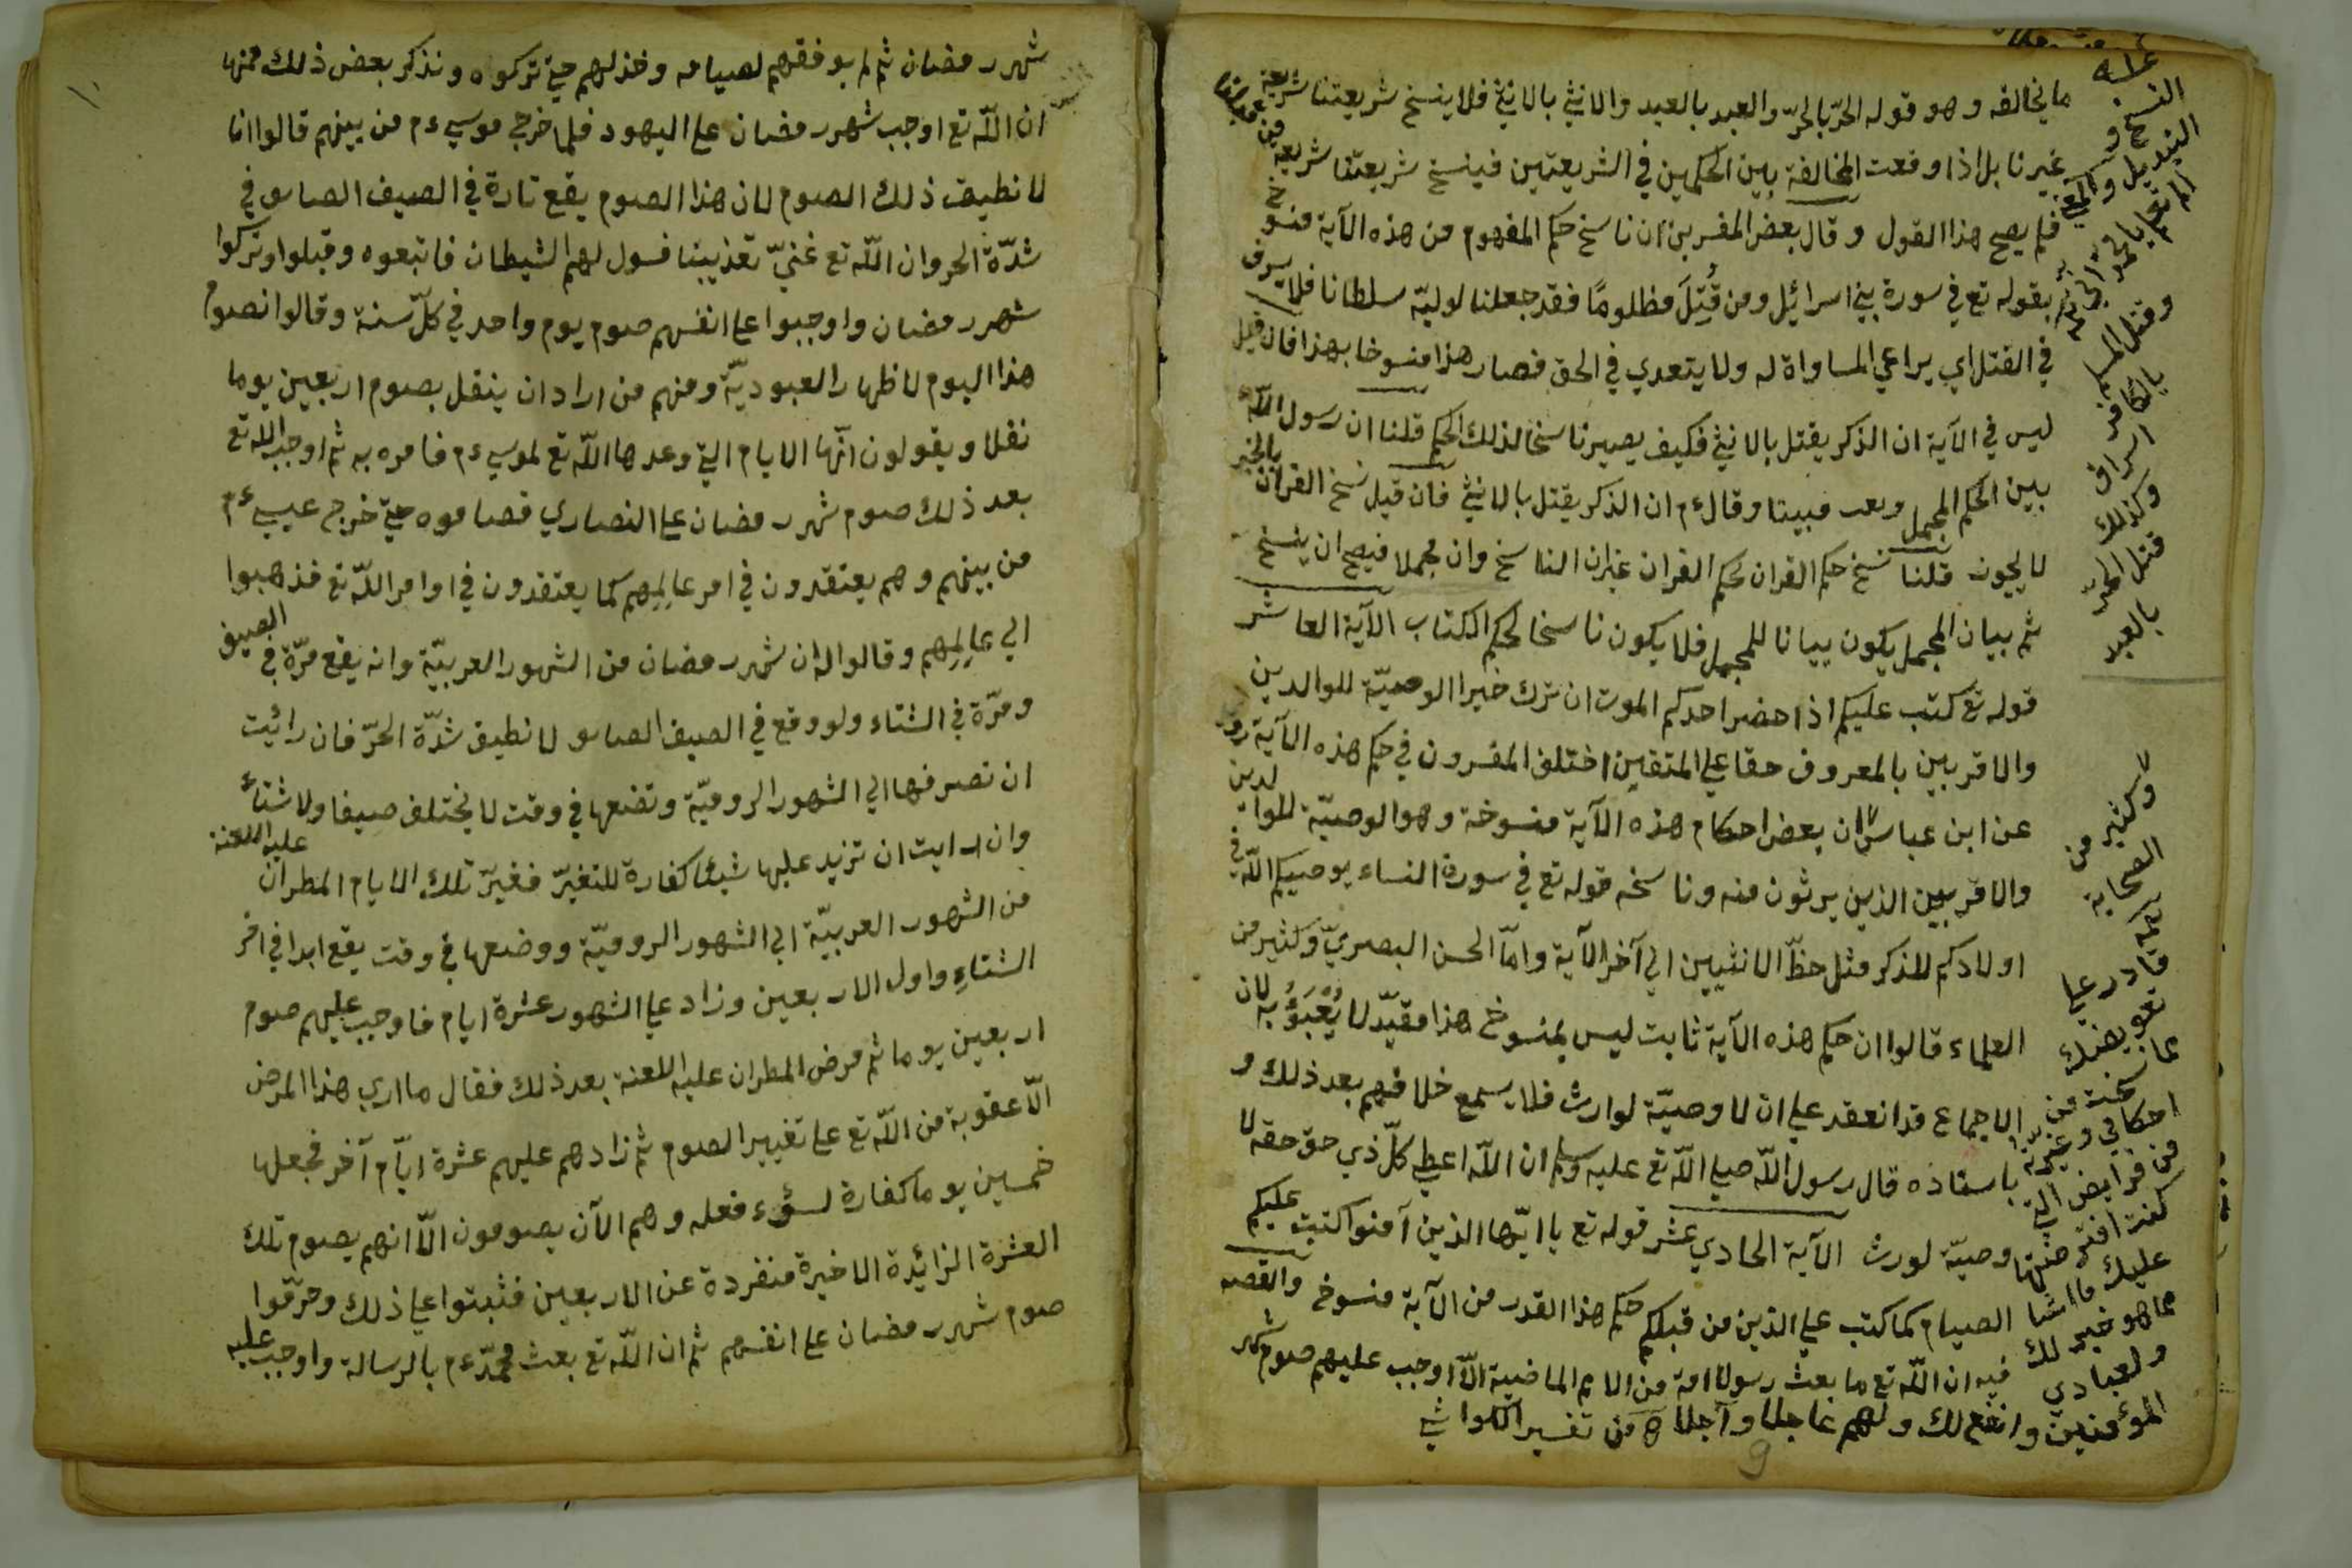 ما يخالفه وهو قوله الحرّ بالحرّ والعبد بالعبد والانثي بالانثي فلا ينسخ شريعتنا شريعة من
غيرنا بل اذا وقعت المخالفة بين الحكمين في الشريعتين فينسخ شريعتنا شريعة من
فلم يصح هذا القول وقال بعض المفسرين ان ناسخ حكم المفهوم من هذه الآية منسوخ
بقوله تع في سورة بني اسرائيل ومن قُتِلَ مظلومًا فقد جعلنا لوليّه سلطانا فلا يسرف
في القتل اي يراعي المساواة له ولا يتعدي في الحق فصار هذا منسوخا بهذا فان قيل
ليس في الآية ان الذكر يقتل بالانثي فكيف يصير ناسخا لذلك الحكم قلنا ان رسول اللّه
بين الحكم المجمل وبعد مبينا وقال ءم ان الذكر يقتل بالانثي فان قيل نسخ القران بالخبر
لا يجوز قلنا نسخ حكم القران بحكم القران غير ان الناسخ وان مجملا فيصح ان ينسخ
ثم بيان المجمل يكون بيانا للمجمل فلا يكون ناسخا لحكم الكتاب الآية العاشر
قوله تع كتب عليكم اذا حضر احدكم الموت ان ترك خيرا الوصيّة للوالدين
والاقربين بالمعروف حقا علي المتقين اختلف المفسرون في حكم هذه الآية روي
عن ابن عباس ان بعض احكام هذه الآية منسوخة وهو الوصيّة للوالدين
والاقربين الذين يرثون منه وناسخه قوله تع في سورة النساء يوصيكم اللّه في
اولادكم للذكر مثل حظّ الانثيين الي آخر الآية وامّا الحسن البصريّ وكثير من
العلماء قالوا ان حكم هذه الآية ثابت ليس بمنسوخ هذا مقيّد لا يُعْبَؤُ به لان
الاجماع قد انعقد علي ان لا وصيّة لوارث فلا يسمع خلافهم بعد ذلك و
باسناده قال رسول اللّه صلي اللّه تع عليه وسلم ان اللّه اعطي كلّ ذي حق حقه لا
وصيّة لورث الآية الحادي عشر قوله تع يا ايّها الذين آمنوا كتب عليكم
الصيام كما كتب علي الذين من قبلكم حكم هذا القدر من الآية منسوخ والقصه
فيه ان اللّه تع ما بعث رسولا امة من الامم الماضية الّا اوجب عليهم صوم شهر
النسخ و
التبديل و
وقتل المسلم
بالكافر
اسراف
وكذلك
قتل الحرّ
بالعبد
وكثير من
الصحابة
قادر علي
تعويضك
عما نسخت من
احكامي وغيرته
من فرايض التي
كنت افترضتها
عليك ما اشا
مما هو خير لك
ولعبادي
المؤمنين وانفع لك ولهم عاجلا وآجلا من تفسير الكواشي
9
شهر رمضان ثم لم يوفقهم لصيامه وخذلهم حتي تركوه ونذكر بعض ذلك فمنها
ان اللّه تع اوجب شهر رمضان علي اليهود فلما خرج موسي ءم من بينهم قالوا انا
لا نطيق ذلك الصوم لان هذا الصوم يقع تارة في الصيف الصايف في
شدّة الحر وان اللّه تع غنيّ تعذيبنا فسول لهم الشيطان فاتبعوه وقبلوا وتركوا
شهر رمضان واوجبوا علي انفسهم صوم يوم واحد في كلّ سنة وقالوا نصوم
هذا اليوم لاظهار العبوديّة ومنهم من اراد ان ينقل بصوم اربعين يوما
نفلا ويقولون انّها الايام التي وعدها اللّه تع لموسي ءم فامره به ثم اوجب اللّه تع
بعد ذلك صوم شهر رمضان علي النصاري فصاموه حتي خرج عيسي ءم
من بينهم وهم يعتقدون في امر عالِمِهم كما يعتقدون في اوامر اللّه تع فذهبوا
الي عالِمِهم وقالوا له ان شهر رمضان من الشهور العربيّة وانه يقع مرّة في الصيف
ومرّة في الشتاء ولو وقع في الصيف الصايف لا نطيق شدّة الحرّ فان رائيت
ان تصرفها الي الشهور الروميّة وتضعها في وقت لا يختلف صيفا ولا شتاء
وان رايت ان تزيد عليها شيئا كفارة للتغيّر فغيّر تلك الايام المطران عليه اللعنة
من الشهور العربيّة الي الشهور الروميّة ووضعها في وقت يقع ابدا في اخر
الشتاءِ واول الاربعين وزاد علي الشهور عشرة ايام فاوجب عليهم صوم
اربعين يوما ثم مرض المطران عليه اللعنة بعد ذلك فقال ما اري هذا المرض
الّا عقوبة من اللّه تع علي تغيير الصوم ثم زادهم عليهم عشرة ايّام آخر فجعلها
خمسين يوما كفارة لسوء فعله وهم الآن يصومون الّا انهم يصوم تلك
العشرة الزائدة الاخيرة منفردة عن الاربعين فثبتوا علي ذلك وحرّموا
صوم شهر رمضان علي انفسهم ثم ان اللّه تع بعث محمّد ءم بالرسالة واوجب عليه